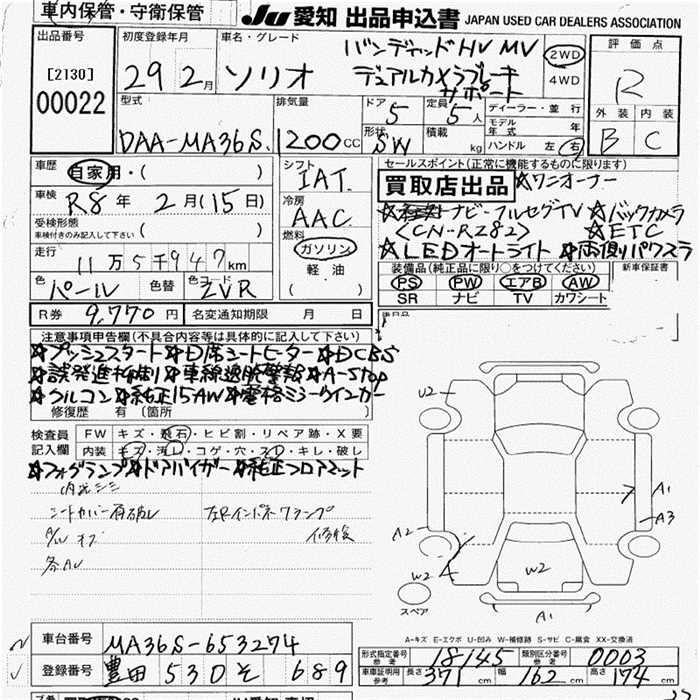 車内保管・守衛保管
Ju 愛知 出品申込書 JAPAN USED CAR DEALERS ASSOCIATION
出品番号
[2130]
00022
初度登録年月
29年 2月
車名・グレード
ソリオ
バンディッドHV MV
デュアルカメラブレーキ
サポート
2WD
4WD
評価点
R
外装 内装
B C
型式
DAA-MA36S
排気量
1200cc
ドア
5
形状
SW
定員
5人
積載
kg
ディーラー・並行
モデル年式 年
ハンドル 左 右
車歴
自家用・( )
車検
R8年 2月(15日)
受検形態
車検付きのみ記入して下さい ( )
走行
11万5千947km
色
パール
色替
色コード
ZVR
シフト
IAT
冷房
AAC
燃料
ガソリン
軽油
( )
セールスポイント(正常に機能するものに限ります)
買取店出品 ☆ワンオーナー
☆純正ナビ・フルセグTV ☆バックカメラ
(CN-RZ82) ☆ETC
☆LEDオートライト ☆両側パワスラ
装備品(純正品に限り○をつけてください)
PS PW エアB AW
SR ナビ TV カワシート
新車保証書
R券 9,770円
名変通知期限 月 日
注意事項申告欄(不具合内容等は具体的に記入して下さい)
☆プッシュスタート ☆D席シートヒーター ☆DCBS
☆誤発進抑制 ☆車線逸脱警報 ☆A-STOP
☆クルコン ☆純正15AW ☆電格ミラーウインカー
修復歴 有(箇所
検査員記入欄
FW キズ・飛石・ヒビ割・リペア跡・X要
内装 キズ・汚レ・コゲ・穴・スレ・キレ・破し
☆フォグランプ ☆ドアバイザー ☆純正フロアマット
シートカバー
左Rインパネクランプ
修復
U2
A1
A3
A2
W2
W2
A1
スペア
A-キズ E-エクボ U-凹み W-補修跡 S-サビ C-腐食 XX-交換済
車台番号
MA36S-653274
登録番号
豊田 530 そ 689
型式指定番号
参考
18145
類別区分番号
参考
0003
車証明用
参考
長さ 371cm 幅 162cm 高さ 174cm